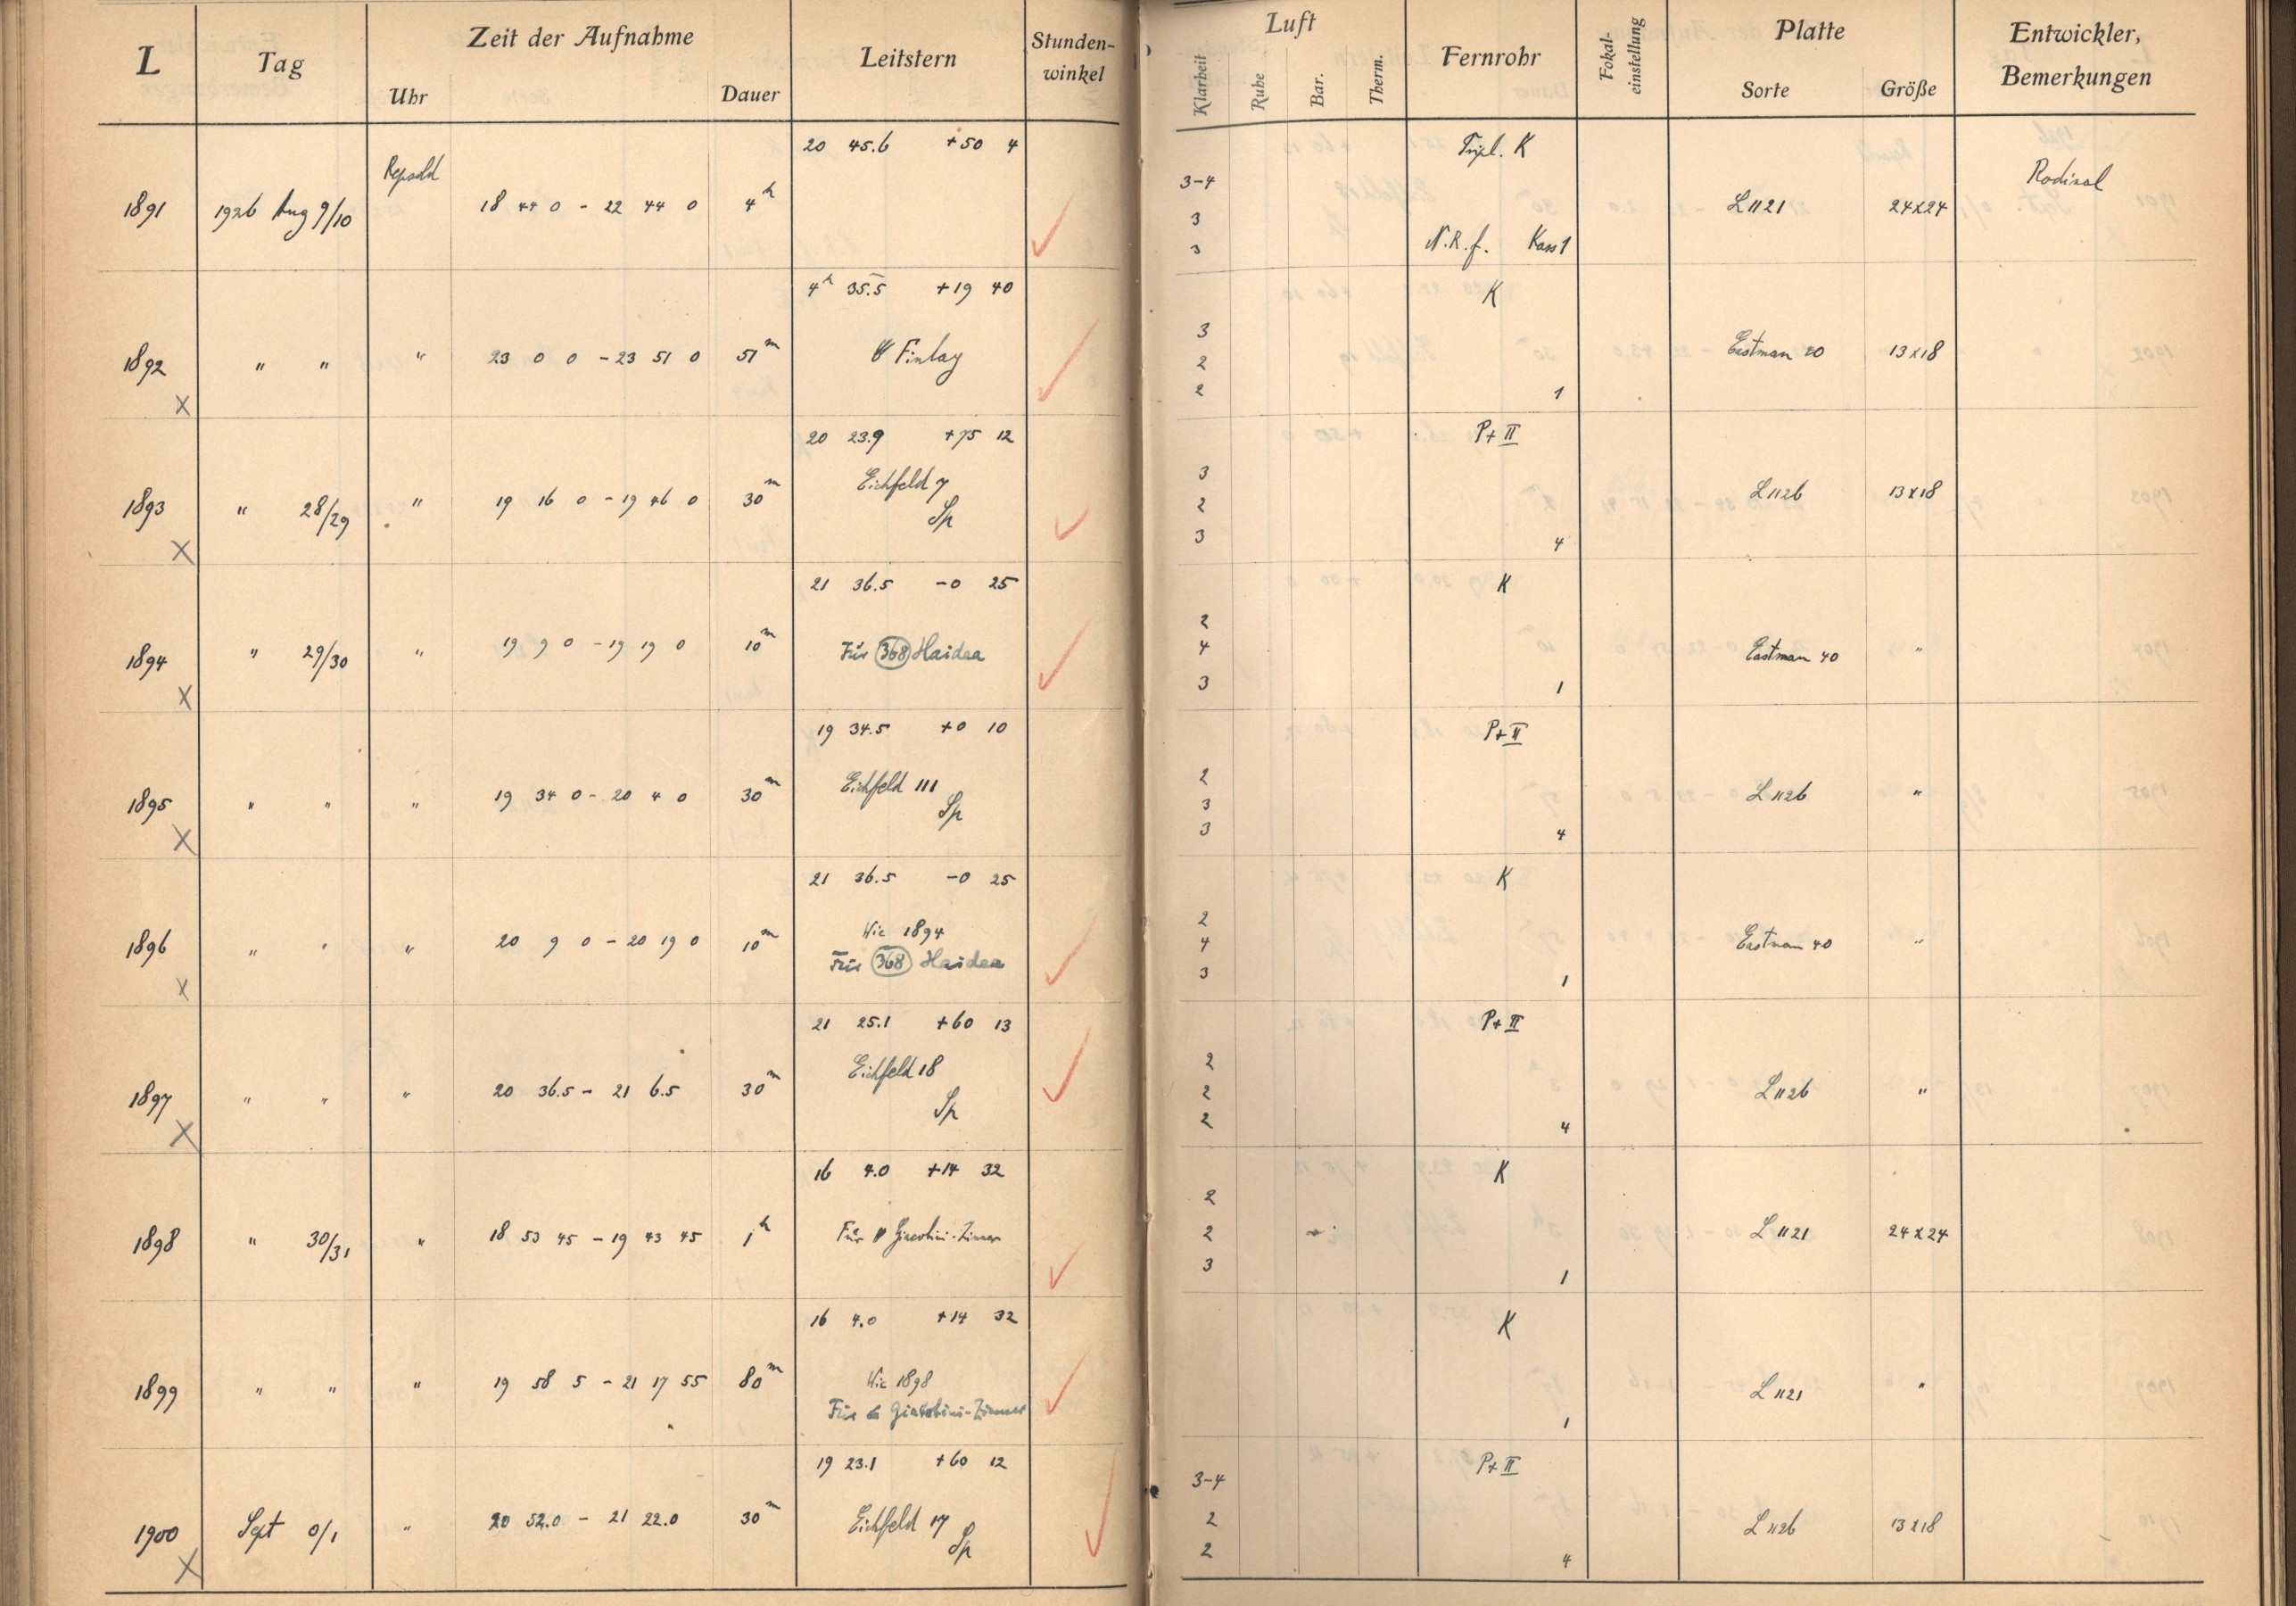 L Tag Zeit der Aufnahme Leitstern Stunden-winkel Luft Fernrohr Fokal-einstellung Platte Entwickler, Bemerkungen
Uhr Dauer Klarheit Ruhe Bar. Therm. Sorte Größe
20 45.6 +50 4 Tripl. K
1891 1926 Aug 9/10 Repsold 18 44 0 - 22 44 0 4h 3-4 L1121 24x24 Rodinal
3
3 N.R.f. Kass 1
4h 35.5 +19 40 K
1892 " " " 23 0 0 - 23 51 0 51m Finlay 3 Eastman 20 13x18
2
X 2 1
20 23.9 +75 12 P+II
1893 " 28/29 " 19 16 0 - 19 46 0 30m Eichfeld 7 3 L1126 13x18
Sp 2
X 3 4
21 36.5 -0 25 K
1894 " 29/30 " 19 9 0 - 19 19 0 10m Für 368 Haidea 2 Eastman 40 "
4
X 3 1
19 34.5 +0 10 P+II
1895 " " " 19 34 0 - 20 4 0 30m Eichfeld 111 2 L1126 "
Sp 3
X 3 4
21 36.5 -0 25 K
1896 " " " 20 9 0 - 20 19 0 10m Wie 1894 2 Eastman 40 "
Für 368 Haidea 4
X 3 1
21 25.1 +60 13 P+II
1897 " " " 20 36.5 - 21 6.5 30m Eichfeld 18 2 L1126 "
Sp 2
X 2 4
16 4.0 +14 32 K
1898 " 30/31 " 18 53 45 - 19 43 45 1h Für Giacobini-Zinner 2 L1121 24x24
2
3 1
16 4.0 +14 32 K
1899 " " " 19 58 5 - 21 17 55 80m Wie 1898 L1121 "
Für Giacobini-Zinner 1
19 23.1 +60 12 P+II
1900 Sept 0/1 " 20 52.0 - 21 22.0 30m Eichfeld 17 3-4 L1126 13x18
Sp 2
X 2 4